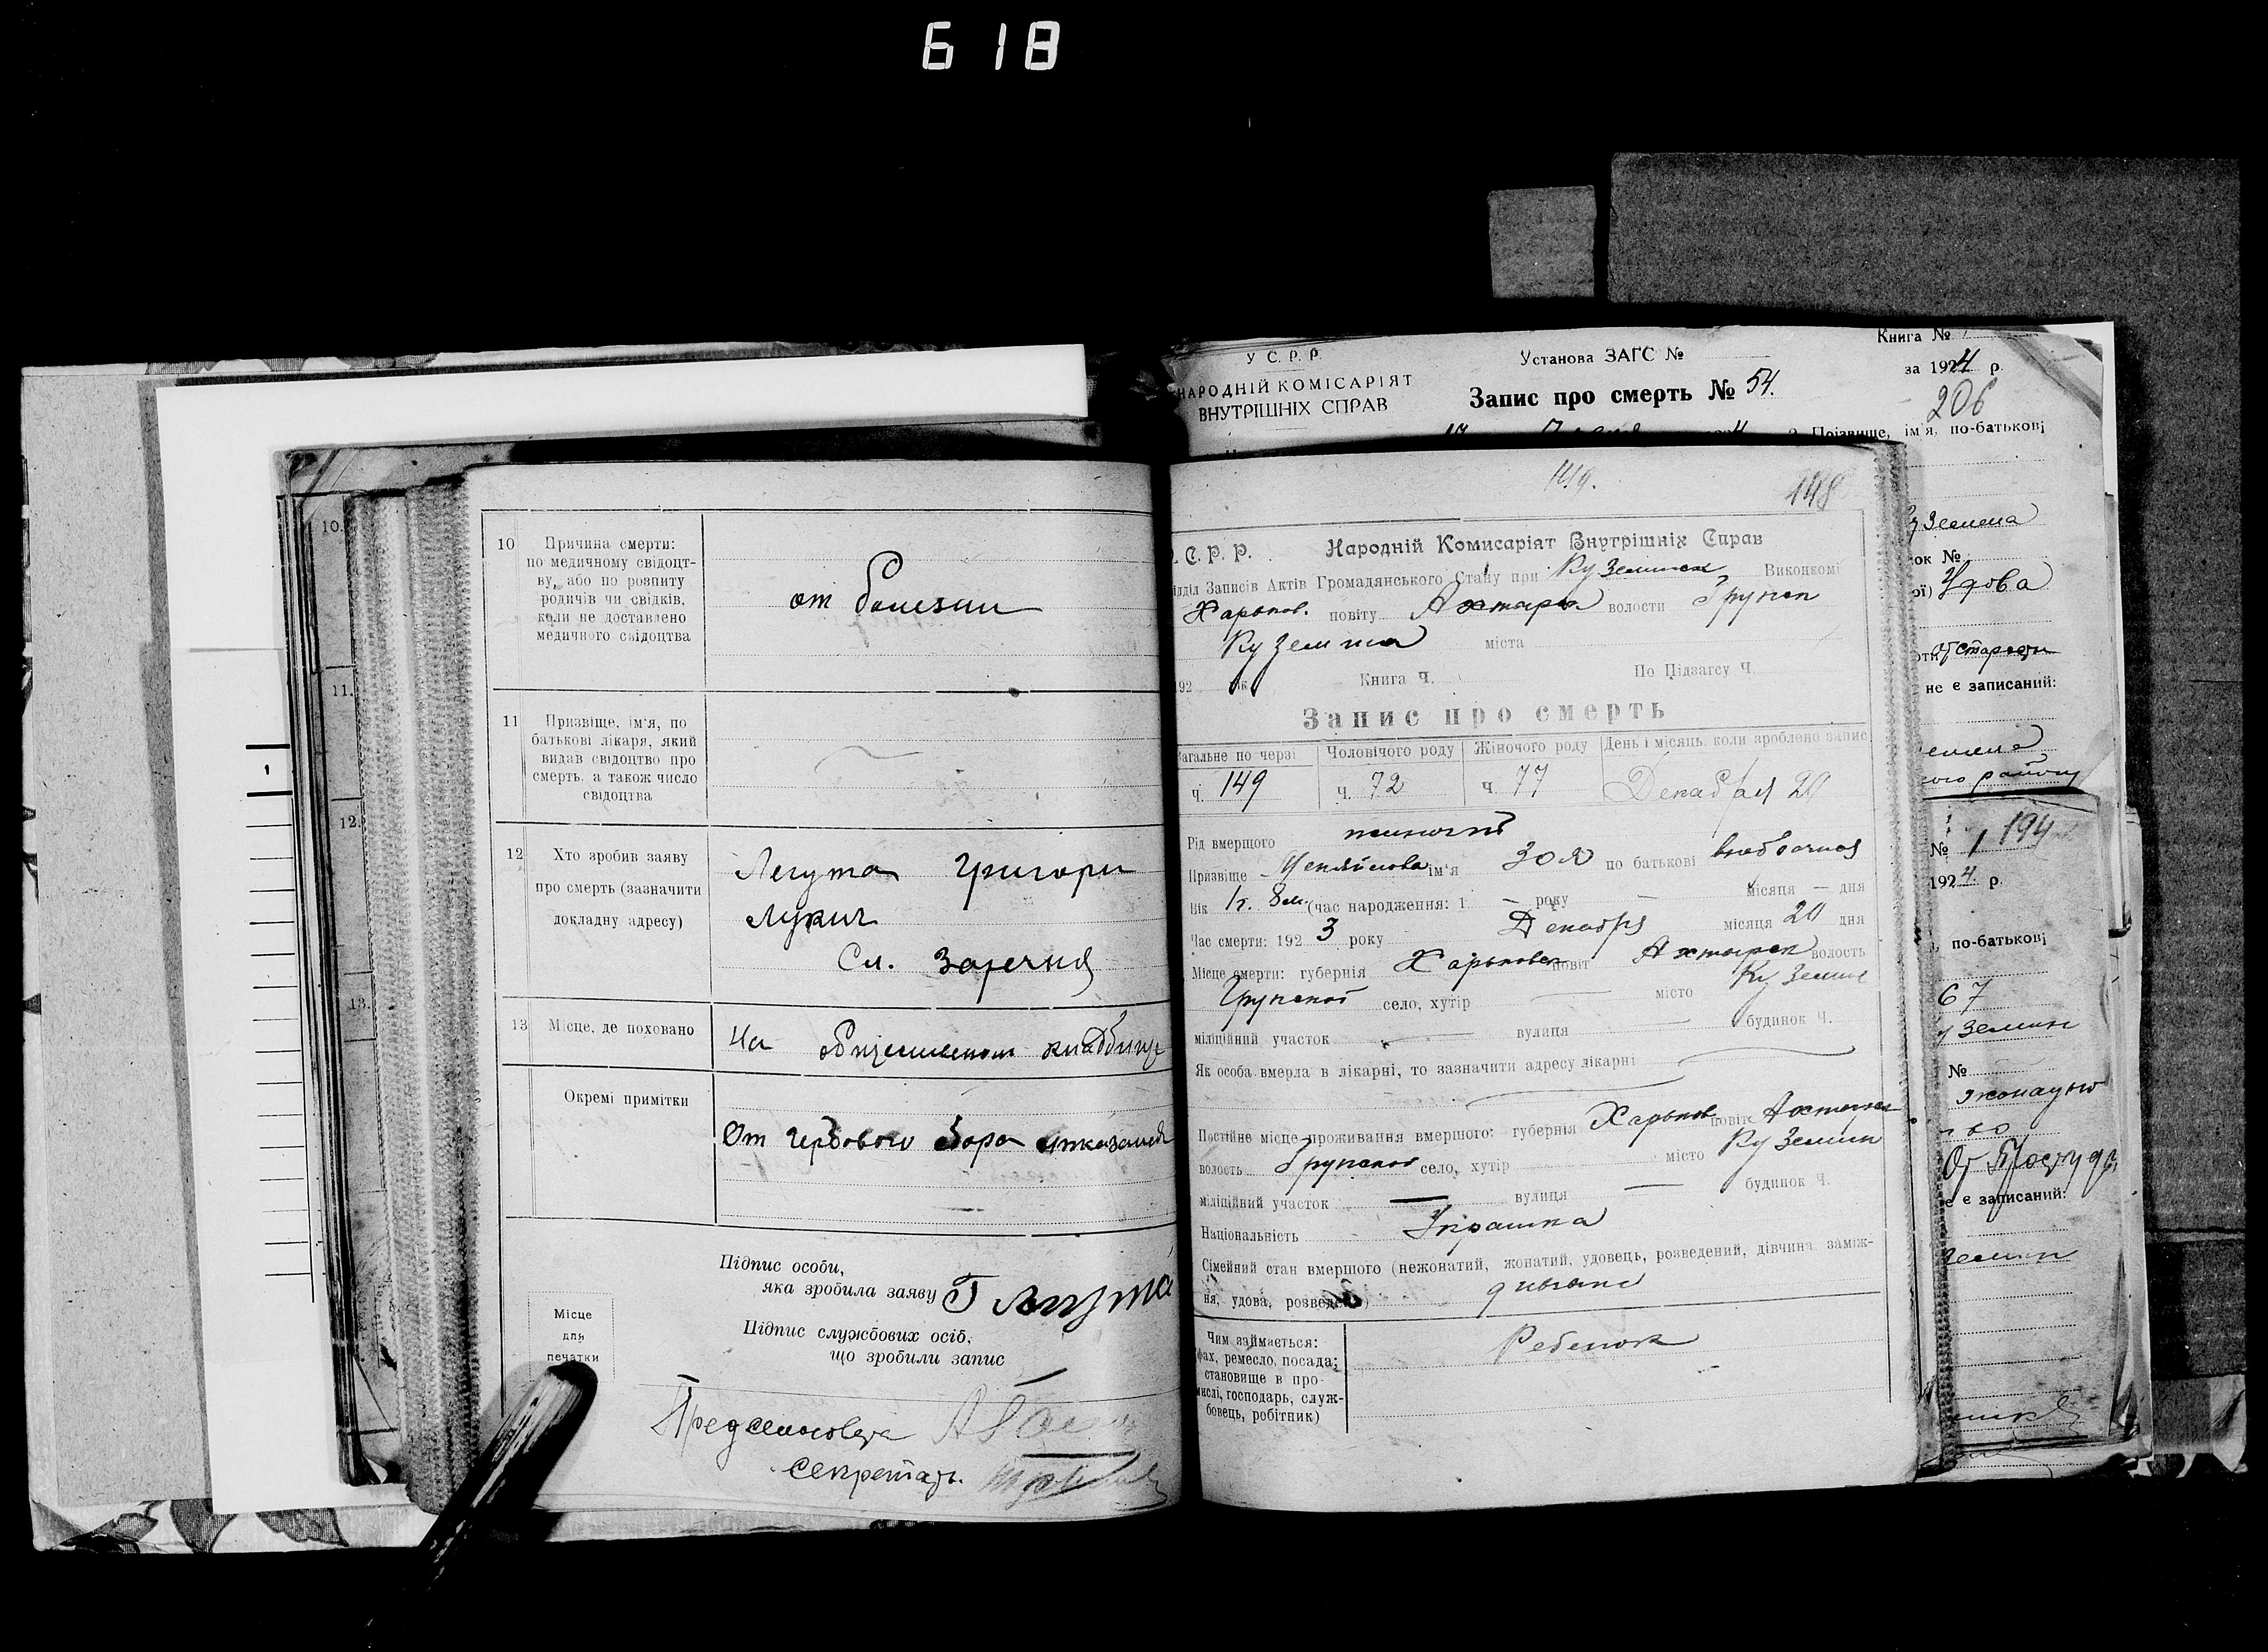 618
10.
11.
12.
13.
10
Причина смерти:
по медичному свідоцт-
ву, або по розпиту
родичів чи свідків,
коли не доставлено
медичного свідоцтва
от болезни
11
Призвіще, ім'я, по
батькові лікаря, який
видав свідоцтво про
смерть, а також число
свідоцтва
12
Хто зробив заяву
про смерть (зазначити
докладну адресу)
Легута Григори
Лукич
Сл. Заречня
13
Місце, де поховано
На кладбищ
Окремі примітки
От гербового збора
Підпис особи,
яка зробила заяву
Г Легута
Підпис службових осіб,
що зробили запис
Місце
для
печатки
Секретарь
У С. Р. Р.
НАРОДНІЙ КОМІСАРІЯТ
ВНУТРІШНІХ СПРАВ
Установа ЗАГС №
Запис про смерть № 54.
Книга №
за 1924 р.
206
Прізвище, ім'я, по-батькові
149.
148
С. Р. Р. Народній Комисаріят Внутрішніх Справ
ідділ Записів Актів Громадянського Стану при Куземинск Виконкомі
Харьков. повіту Ахтырск волости Грунск
Куземина міста
192 рік Книга Ч. По Підзагсу Ч.
Запис про смерть
Загальне по черзі Чоловічого роду Жіночого роду День і місяць, коли зроблено запис
ч. 149 ч. 72 ч. 77 Декабря 20
Рід вмерщого женский
Призвіще ім'я Зоя по батькові внебрачная
Вік 1 г. 8 м. (час народження: 1 — року — місяця — дня
Час смерти: 192 3 року Декабря місяця 20 дня
Місце смерти: губернія Харьковск повіт Ахтырск волость
Грунской село, хутір — місто Куземин
міліційний участок — вулиця — будинок Ч.
Як особа вмерла в лікарні, то зазначити адресу лікарні
Постійне місце проживання вмершого: губернія Харьков повіт Ахтырск
волость Грунской село, хутір місто Куземин
міліційний участок — вулиця — будинок Ч.
Національність Украинка
Сімейний стан вмершого (нежонатий, жонатий, удовець, розведений, дівчина, заміж-
ня, удова, розведена) дивчина
Чим займається:
фах, ремесло, посада;
становище в про-
мислі, господарь, служ-
бовець, робітник)
Ребенок
уземена
ок №
Удова
от старости
не є записаний:
ого району
№ 1 194
1924 р.
по-батькові
67
уземин
№
От Простуды
е є записаний:
земин